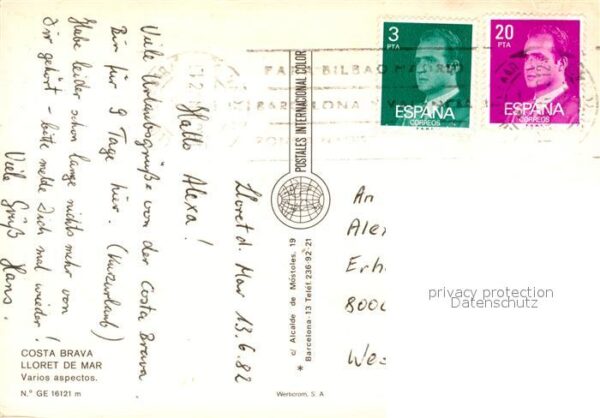 Lloret d. Mar 13.6.82
Hallo Alexa!
Viele Urlaubsgrüße von der Costa Brava.
Bin für 9 Tage hier. (Kurzurlaub)
Habe leider schon lange nichts mehr von
Dir gehört - bitte melde Dich mal wieder!
Viele Grüße Hans.
COSTA BRAVA
LLORET DE MAR
Varios aspectos.
N.º GE 16121 m
POSTALES INTERNACIONAL COLOR
c/ Alcalde de Móstoles, 19
* Barcelona-13 Teléf. 236-92-21
Wertscrom, S. A
3
PTA
ESPAÑA
CORREOS
20
PTA
ESPAÑA
CORREOS
BILBAO MADRID
BARCELONA Y
An
Erh
8000
We
privacy protection
Datenschutz